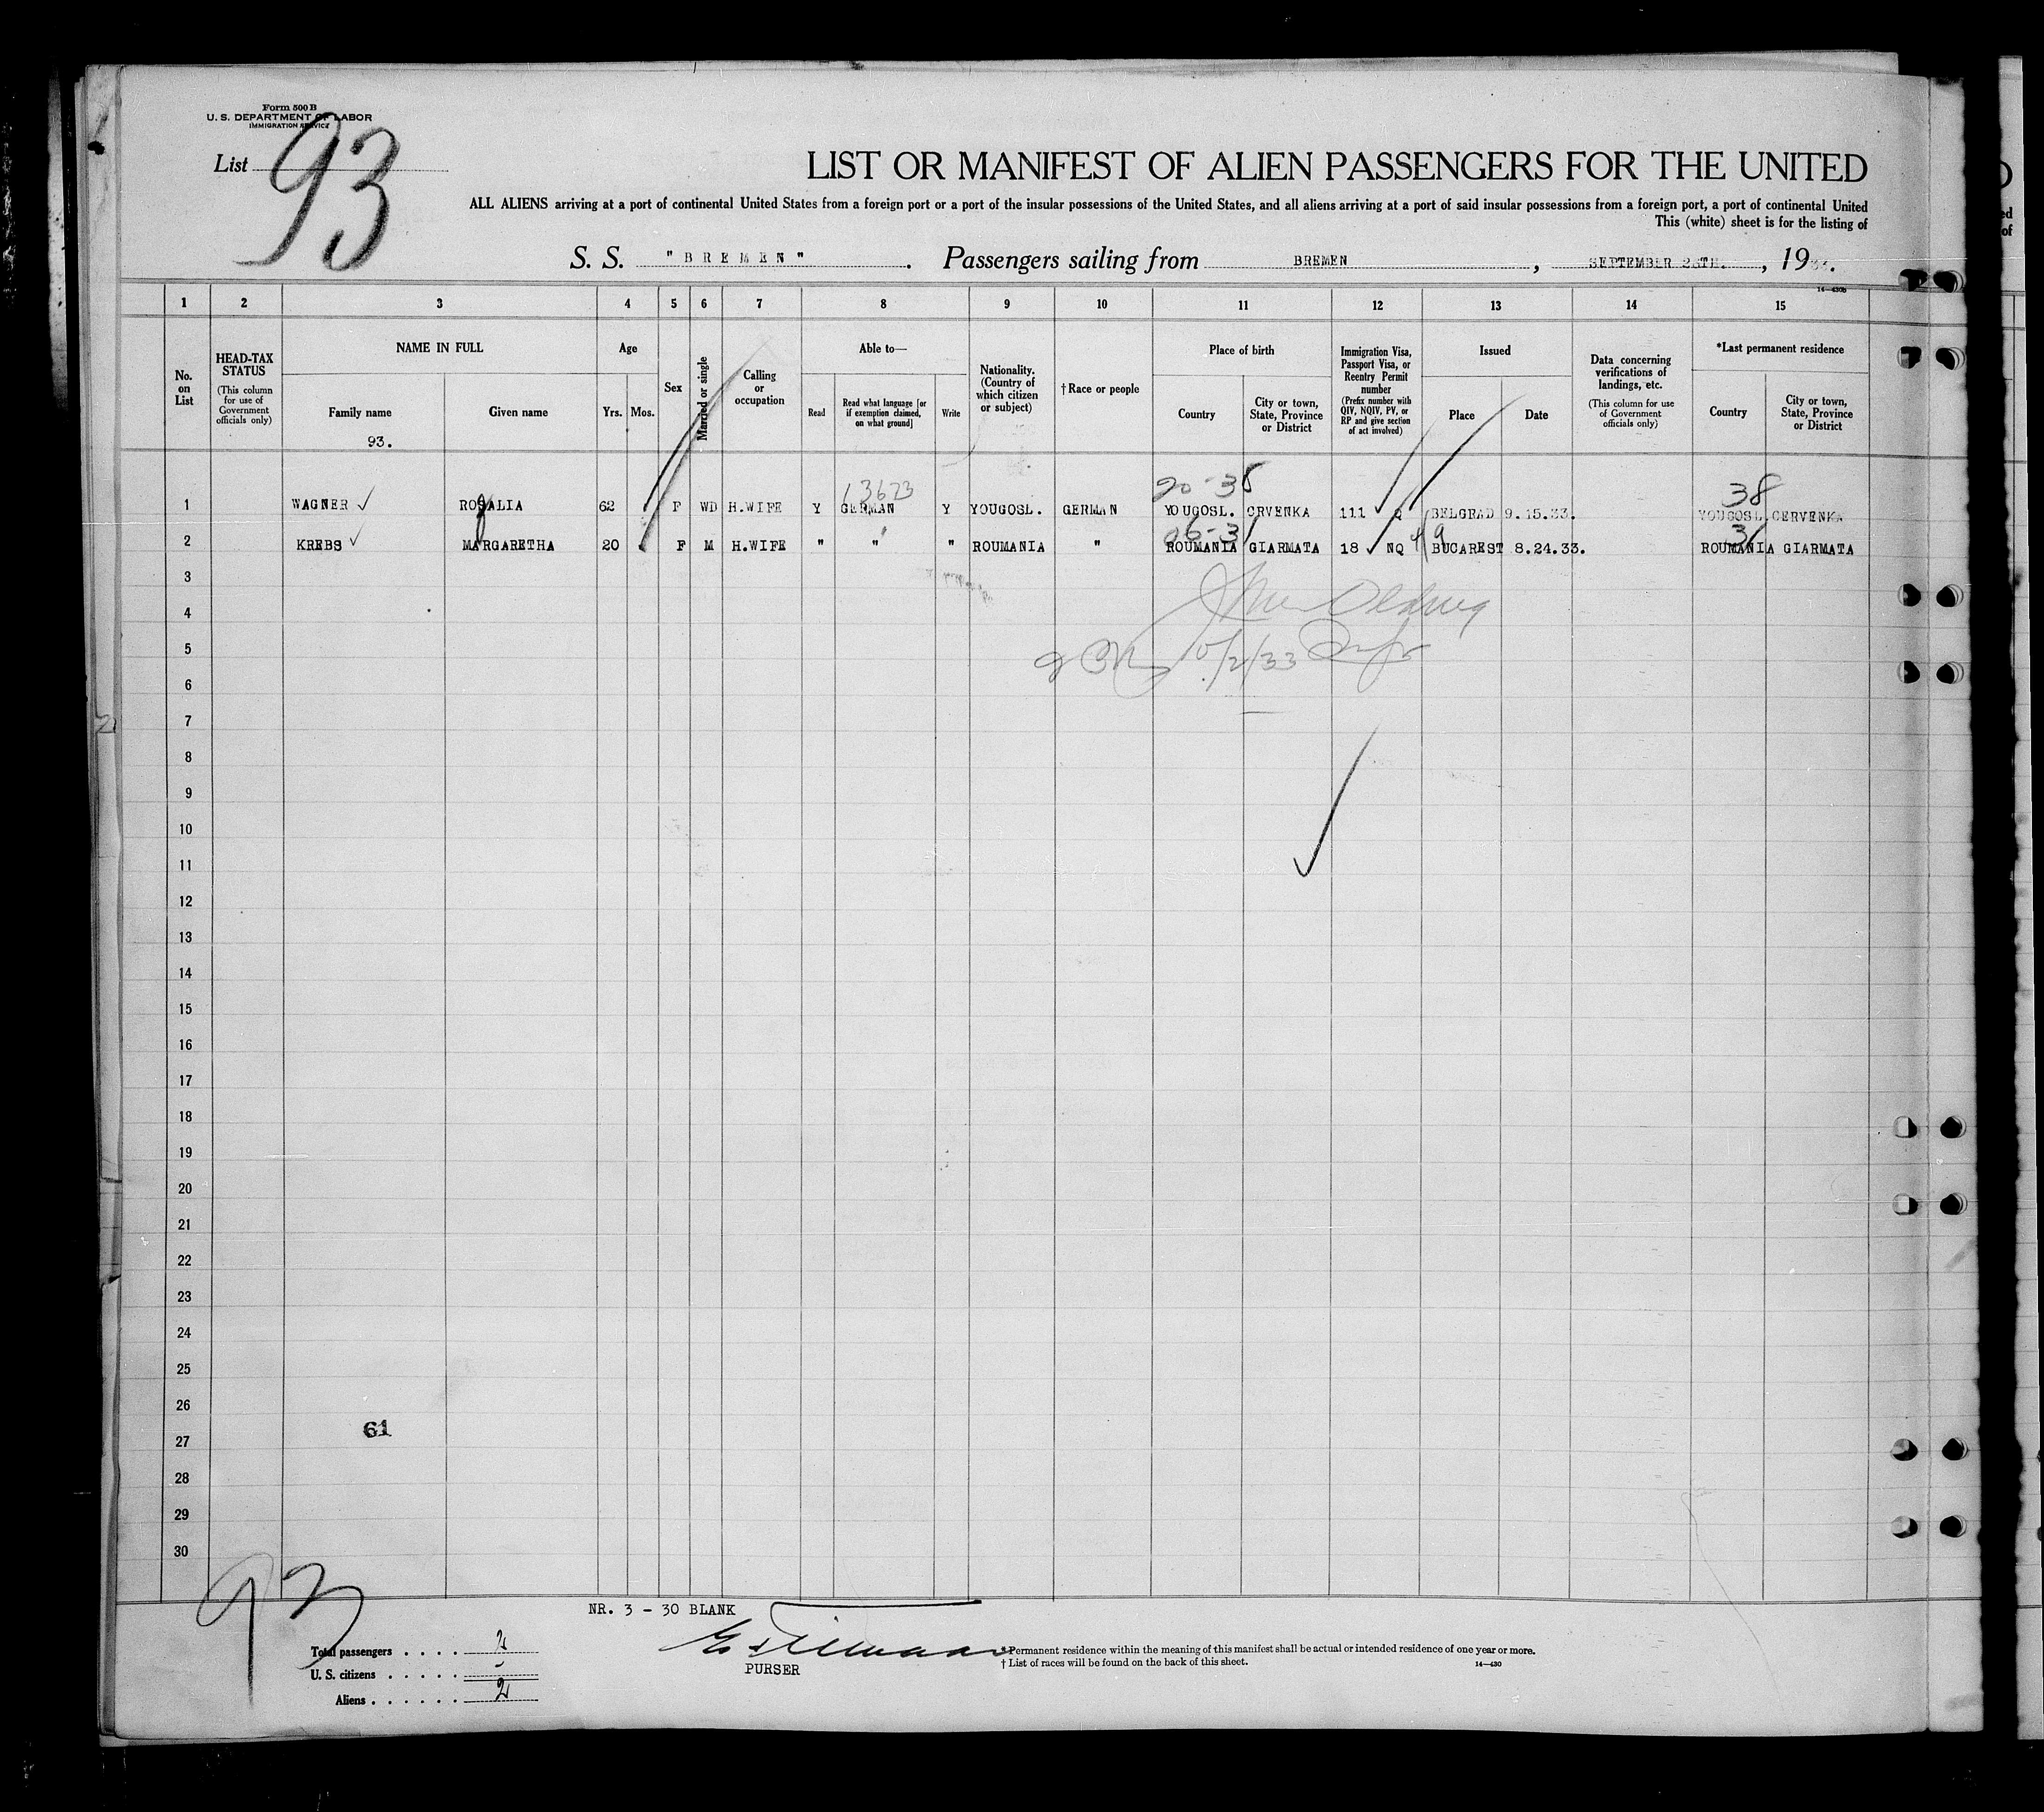 Form 500 B
U. S. DEPARTMENT OF LABOR
IMMIGRATION SERVICE
List 93
LIST OR MANIFEST OF ALIEN PASSENGERS FOR THE UNITED
ALL ALIENS arriving at a port of continental United States from a foreign port or a port of the insular possessions of the United States, and all aliens arriving at a port of said insular possessions from a foreign port, a port of continental United
This (white) sheet is for the listing of
S. S. "BREMEN". Passengers sailing from BREMEN, SEPTEMBER 26TH., 1933.
14—430B
1 2 3 4 5 6 7 8 9 10 11 12 13 14 15
No. on List
HEAD-TAX STATUS (This column for use of Government officials only)
NAME IN FULL
Family name
Given name
93.
Age
Yrs. Mos.
Sex
Married or single
Calling or occupation
Able to—
Read
Read what language [or if exemption claimed, on what ground]
Write
Nationality. (Country of which citizen or subject)
†Race or people
Place of birth
Country
City or town, State, Province or District
Immigration Visa, Passport Visa, or Reentry Permit number (Prefix number with QIV, NQIV, PV, or RP and give section of act involved)
Issued
Place
Date
Data concerning verifications of landings, etc. (This column for use of Government officials only)
*Last permanent residence
Country
City or town, State, Province or District
13623 20-38 38
1 WAGNER ROSALIA 62 F WD H.WIFE Y GERMAN Y YOUGOSL. GERMAN YOUGOSL. CRVENKA 111 Q BELGRAD 9.15.33. YOUGOSL. CERVENKA
06-31 31
2 KREBS MARGARETHA 20 F M H.WIFE " " " ROUMANIA " ROUMANIA GIARMATA 18 NQ 4/9 BUCAREST 8.24.33. ROUMANIA GIARMATA
3
4
5 10/2/33
6
7
8
9
10
11
12
13
14
15
16
17
18
19
20
21
22
23
24
25
26
61
27
28
29
30
93
NR. 3 - 30 BLANK
Total passengers . . . . 2
U. S. citizens . . . . . -
Aliens . . . . . . 2
PURSER
*Permanent residence within the meaning of this manifest shall be actual or intended residence of one year or more.
† List of races will be found on the back of this sheet.
14—430